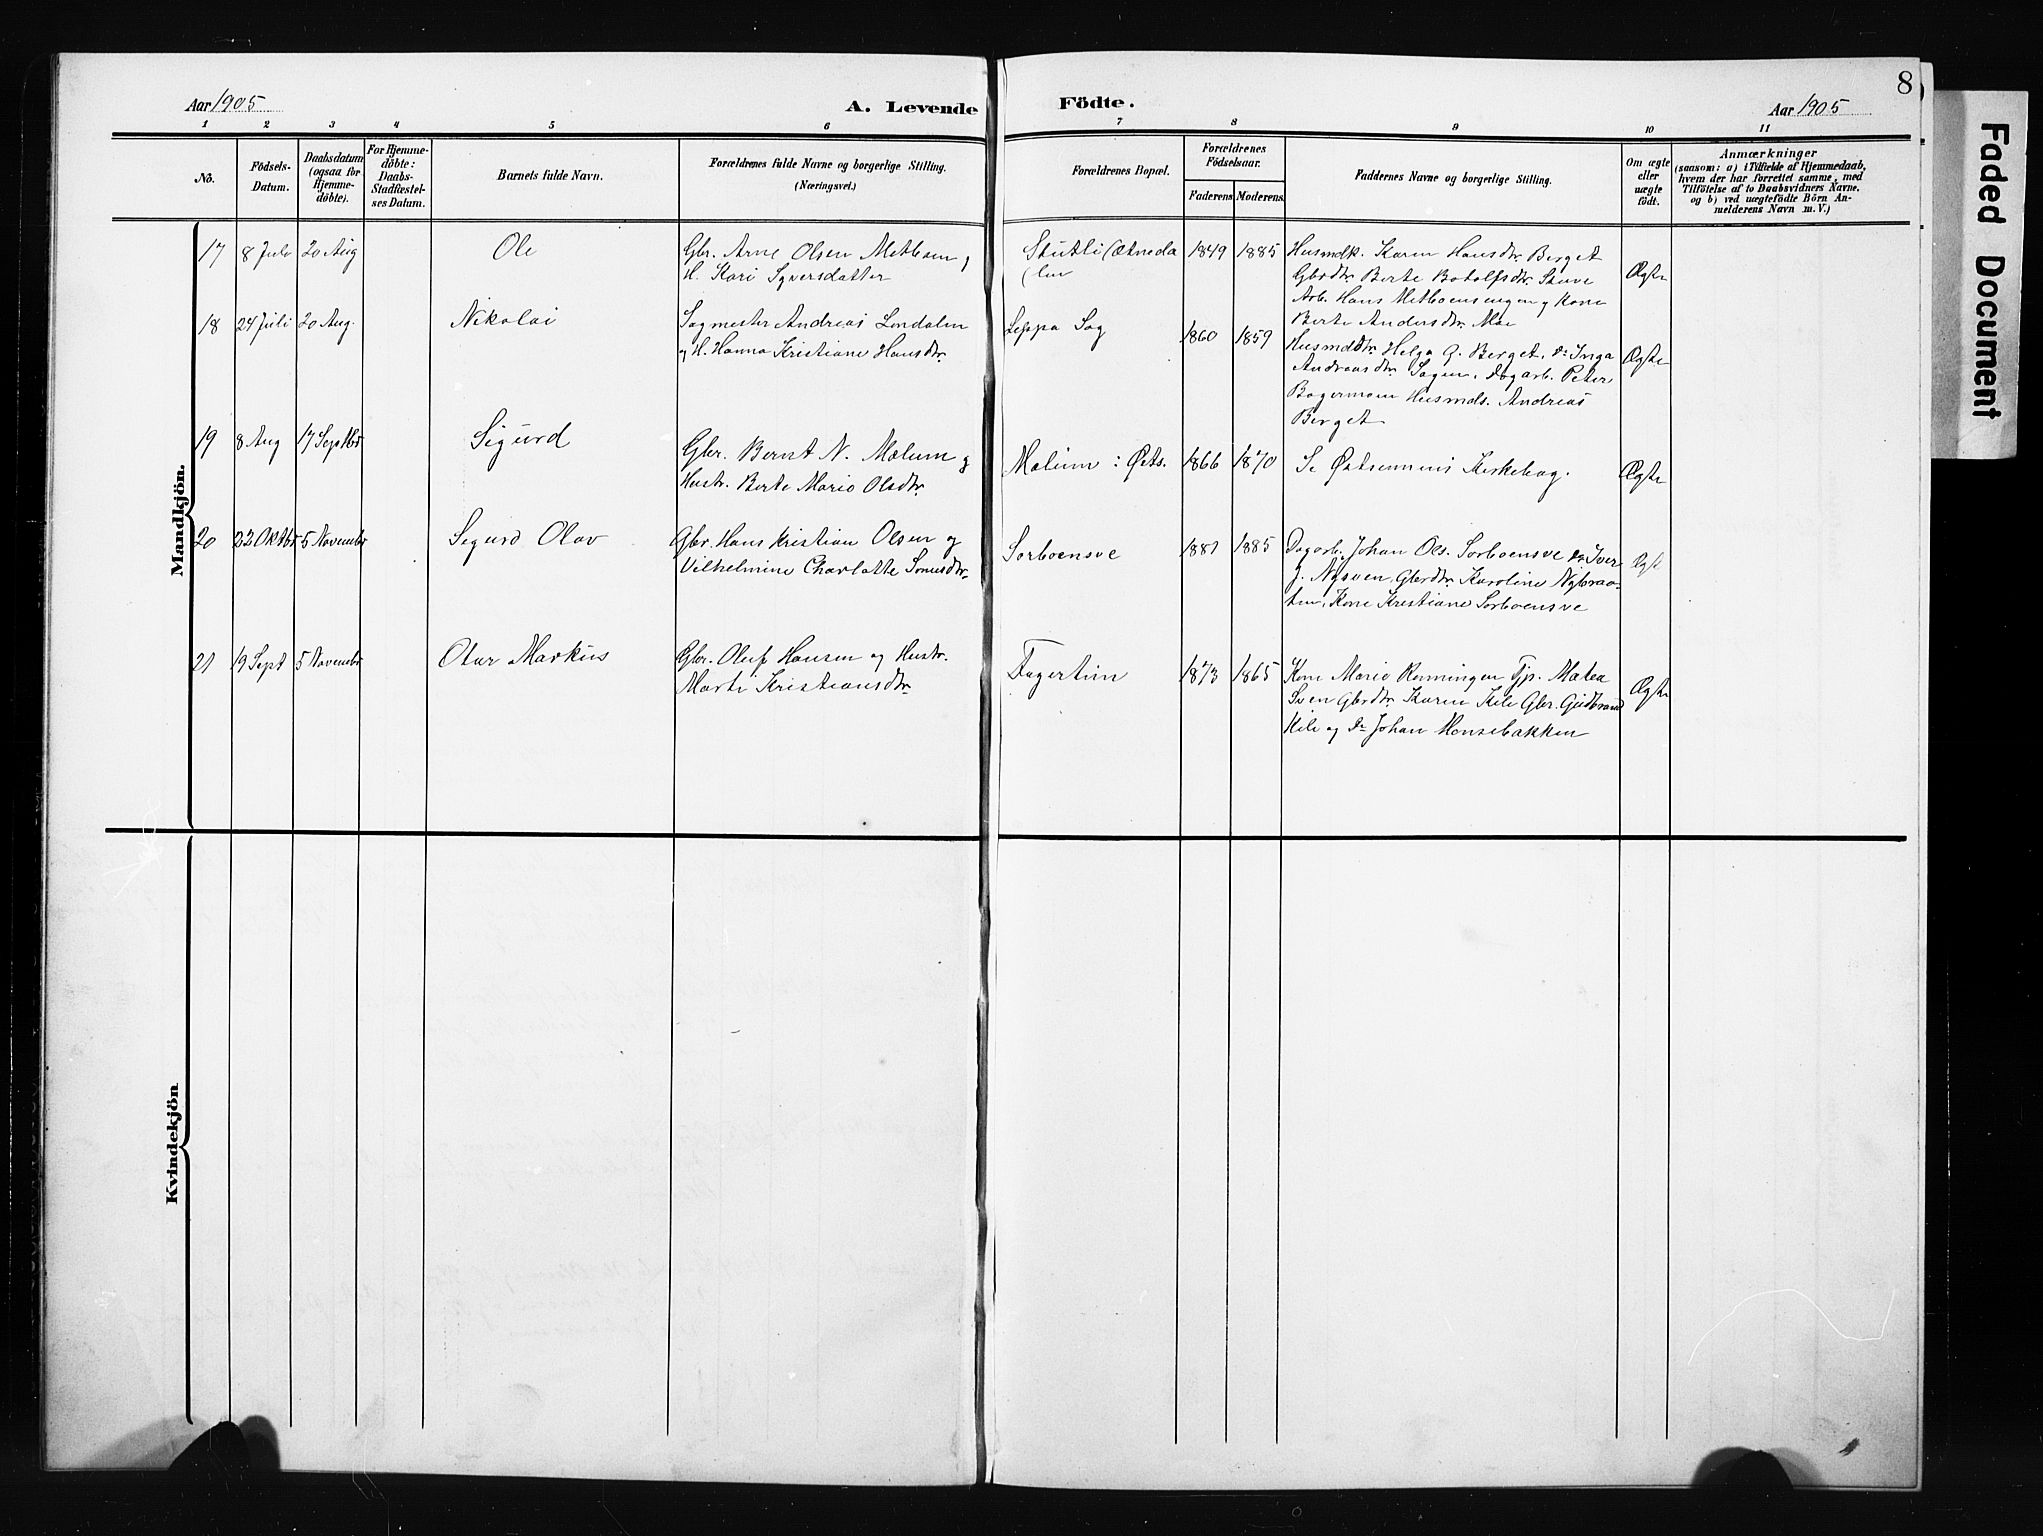 8
Aar 1905
A. Levende Födte.
Aar 1905
1 2 3 4 5 6 7 8 9 10 11
No.
Födsels-
Datum.
Daabsdatum
(ogsaa for
Hjemme-
döbte).
For Hjemme-
döbte:
Daabs-
Stadfæstel-
ses Datum.
Barnets fulde Navn.
Forældrenes fulde Navne og borgerlige Stilling.
(Næringsvei.)
Forældrenes Bopæl.
Forældrenes
Födselsaar.
Faderens
Moderens
Faddernes Navne og borgerlige Stilling.
Om ægte
eller
uægte
födt.
Anmærkninger
(saasom: a) i Tilfælde af Hjemmedaab,
hvem der har forrettet samme, med
Tilföielse af to Daabsvidners Navne,
og b) ved uægtefödte Börn An-
melderens Navn m. V.)
Mandkjön.
17
8 Juli
20 Aug
Ole
Gbr. Arne Olsen Metboen og
H. Kari Syversdatter
Stutli (Etneda
len
1849
1885
Husmdk. Karen Hansdtr Berget
Gbrdtr. Berte Botolfsdtr. Stuve
Arb. Hans Metboensengen og Kone
Berte Andersdtr. Moe
Ægte
18
24 Juli
20 Aug.
Nikolai
Sagmester Andreas Lindalen
og H. Hanna Kristiane Hansdtr.
Leppa Sag
1860
1859
Husmdtr. Helga G. Berget, Do Inga
Andreasdtr. Sagen, Dagarb. Peter
Bagermoen Husmds. Andreas
Berget
Ægte
19
8 Aug
17 Septbr
Sigurd
Gbr. Bernt N. Mælum og
Hustr. Berte Marie Olsdtr.
Mælum : Østs.
1866
1870
Se Østsinnens Kirkebog.
Ægte
20
22 Oktbr
5 November
Sigurd Olav
Gbr. Hans Kristian Olsen og
Vilhelmine Charlotte
Sorboensve
1881
1885
Dagarb. Johan Ols. Sorboensve Do Iver
J. Nysven, Gbrdtr. Karoline Nybraa-
ten, Kone Kristiane Sorboensve
Ægt
21
19 Sept
5 Novembr
Olar Markus
Gbr. Oluf Hansen og Hustr.
Marte Kristiansdtr.
Fagertun
1873
1865
Kone Marie Rønningen Tjp. Matea
Sven Gbrdtr. Karen Kile Gbr. Gudbrand
Kile og Do Johan Hensebakken
Ægte
Kvindekjön
Faded Document